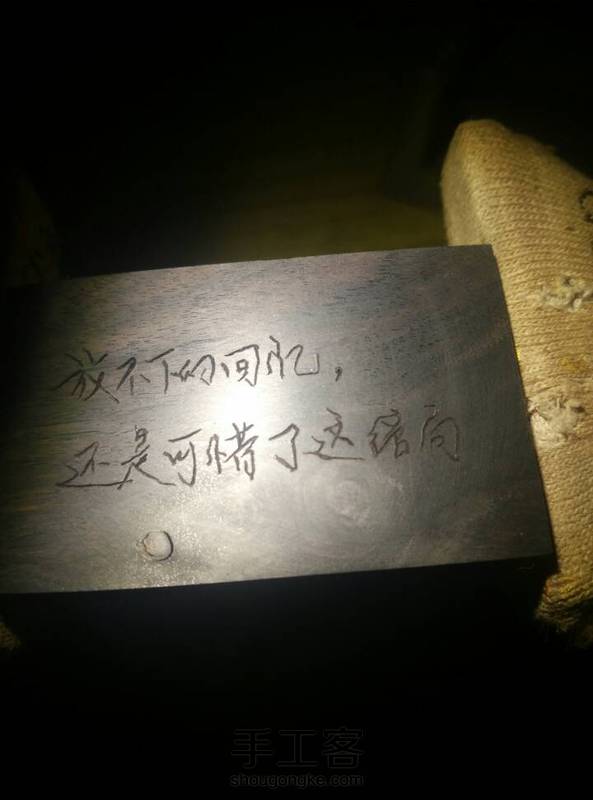 放不下的回忆，
还是可惜了这结局
手工客
shougongke.com